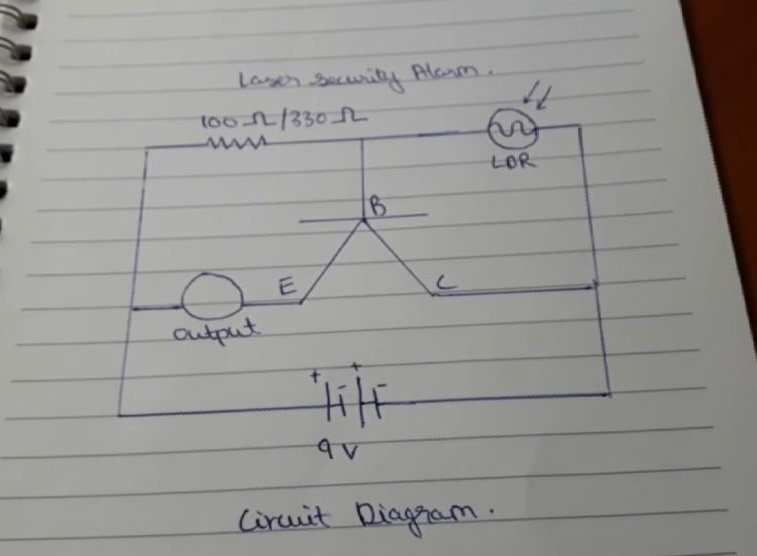 Laser Security Alarm.
100 Ω/330 Ω
LDR
B
E
C
output
+ + -
9 V
Circuit Diagram.